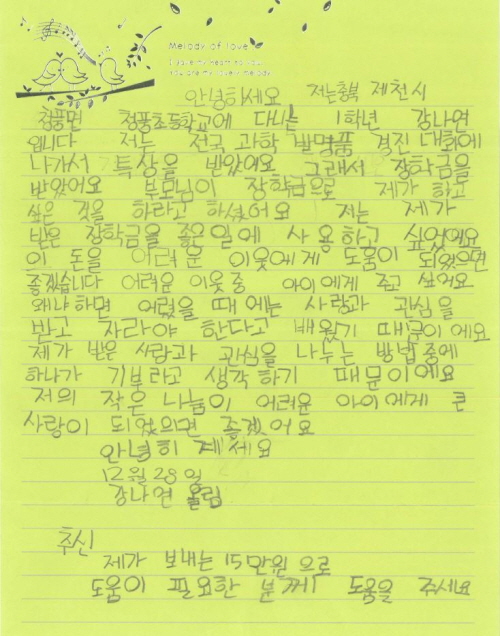 Melody of love
I gave my heart to you.
You are my lovely melody.
안녕하세요 저는충북 제천시
청풍면 청풍초등학교에 다니는 1학년 강나연
입니다 저는 전국 과학 발명품 경진 대회에
나가서 특상을 받았어요 그래서 장학금을
받았어요 부모님이 장학금으로 제가 하고
싶은 것을 하라고 하셨어요 저는 제가
받은 장학금을 좋은일에 사용하고 싶었어요
이 돈을 어려운 이웃에게 도움이 되었으면
좋겠습니다 어려운 이웃중 아이에게 주고 싶어요
왜냐하면 어렸을 때에는 사랑과 관심을
받고 자라야 한다고 배웠기 때문이에요
제가 받은 사랑과 관심을 나누는 방법중에
하나가 기부라고 생각하기 때문이에요
저의 작은 나눔이 어려운 아이에게 큰
사랑이 되었으면 좋겠어요
안녕히 계세요
12월 28일
강나연 올림
추신
제가 보내는 15만원으로
도움이 필요한 분께 도움을 주세요